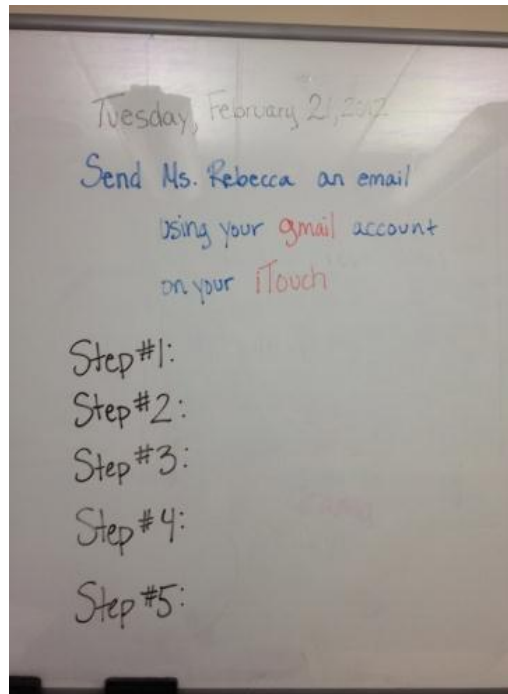 Tuesday, February 21, 2012
Send Ms. Rebecca an email
using your gmail account
on your iTouch
Step#1:
Step#2:
Step#3:
Step#4:
Step#5: